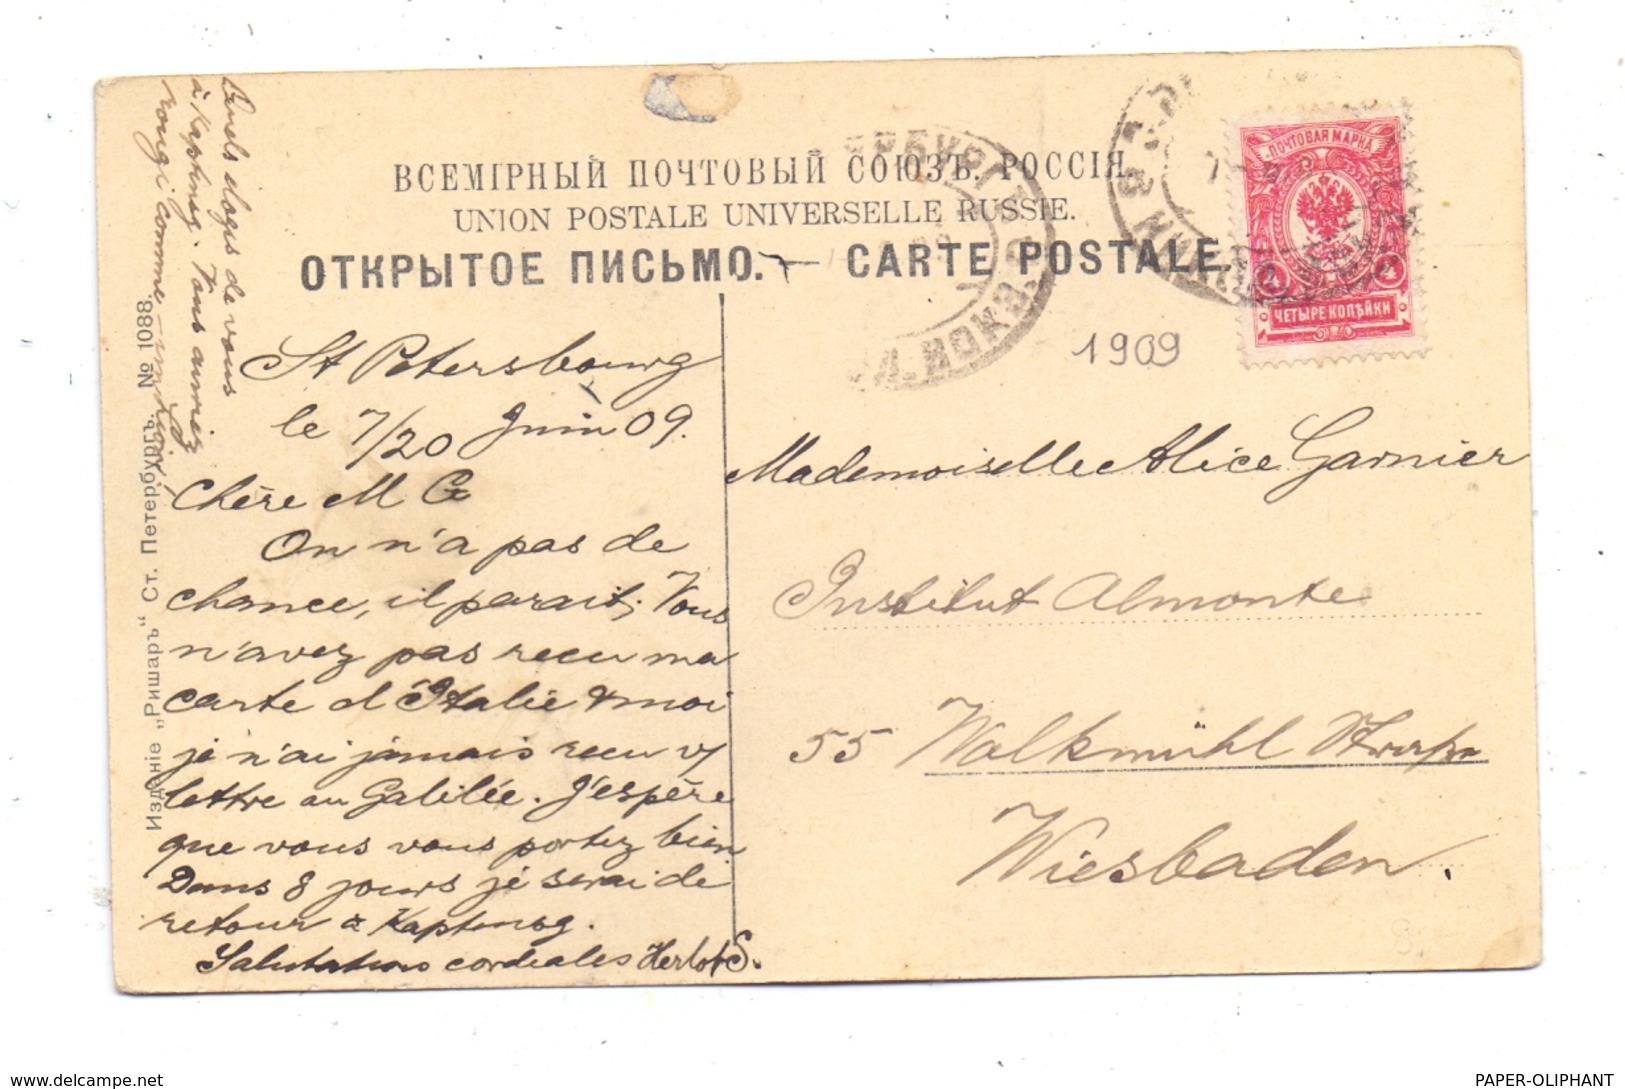 ВСЕМІРНЫЙ ПОЧТОВЫЙ СОЮЗЪ. РОССІЯ.
UNION POSTALE UNIVERSELLE RUSSIE.
ОТКРЫТОЕ ПИСЬМО. — CARTE POSTALE.
ПОЧТОВАЯ МАРКА
4 4
ЧЕТЫРЕ КОПѢЙКИ
1909
St Petersbourg
le 7/20 Juin 09.
Chère M G
On n'a pas de
chance, il parait; Vous
n'avez pas recu ma
carte d'Italie & moi
je n'ai jamais recu v/
lettre au Galilée. J'espère
que vous vous portez bien
Dans 8 jours je serai de
retour à
Salutations cordiales
Quels éloges de vous
à Vous auriez
rougi comme
Mademoiselle Alice Garnier
Institut Almonte
55 Walkmühl Strasse
Wiesbaden.
Изданіе „Ришаръ“ Ст. Петербургъ. № 1088.
delcampe.net
PAPER-OLIPHANT